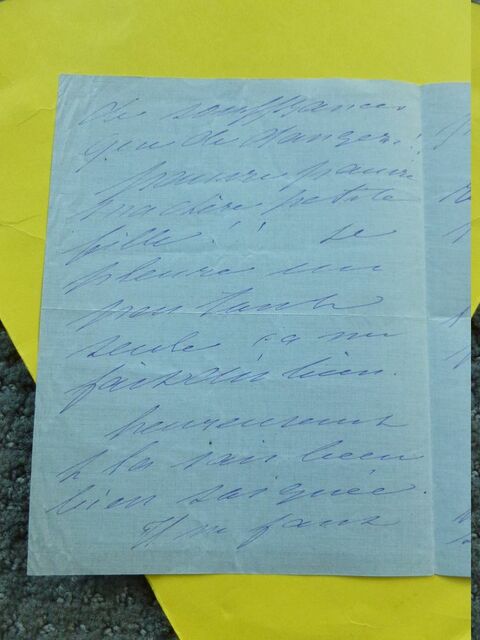 de souffrances
que de dangers!!
pauvre pauvre
ma chère petite
fille!! Je
pleure un
peu toute
seule ça me
fait du bien.
heureusement
la sais bien
bien soignée.
Il me faut